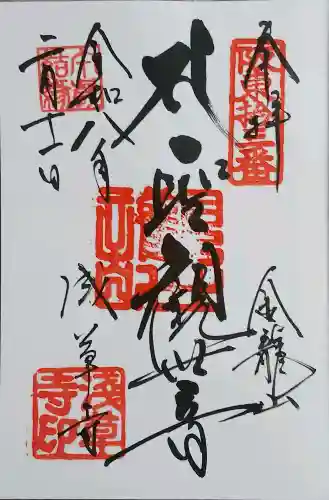 坂東拾三番
奉拝
金龍山
聖観世音
令和八年
二月十一日
浅草寺
淺草寺印